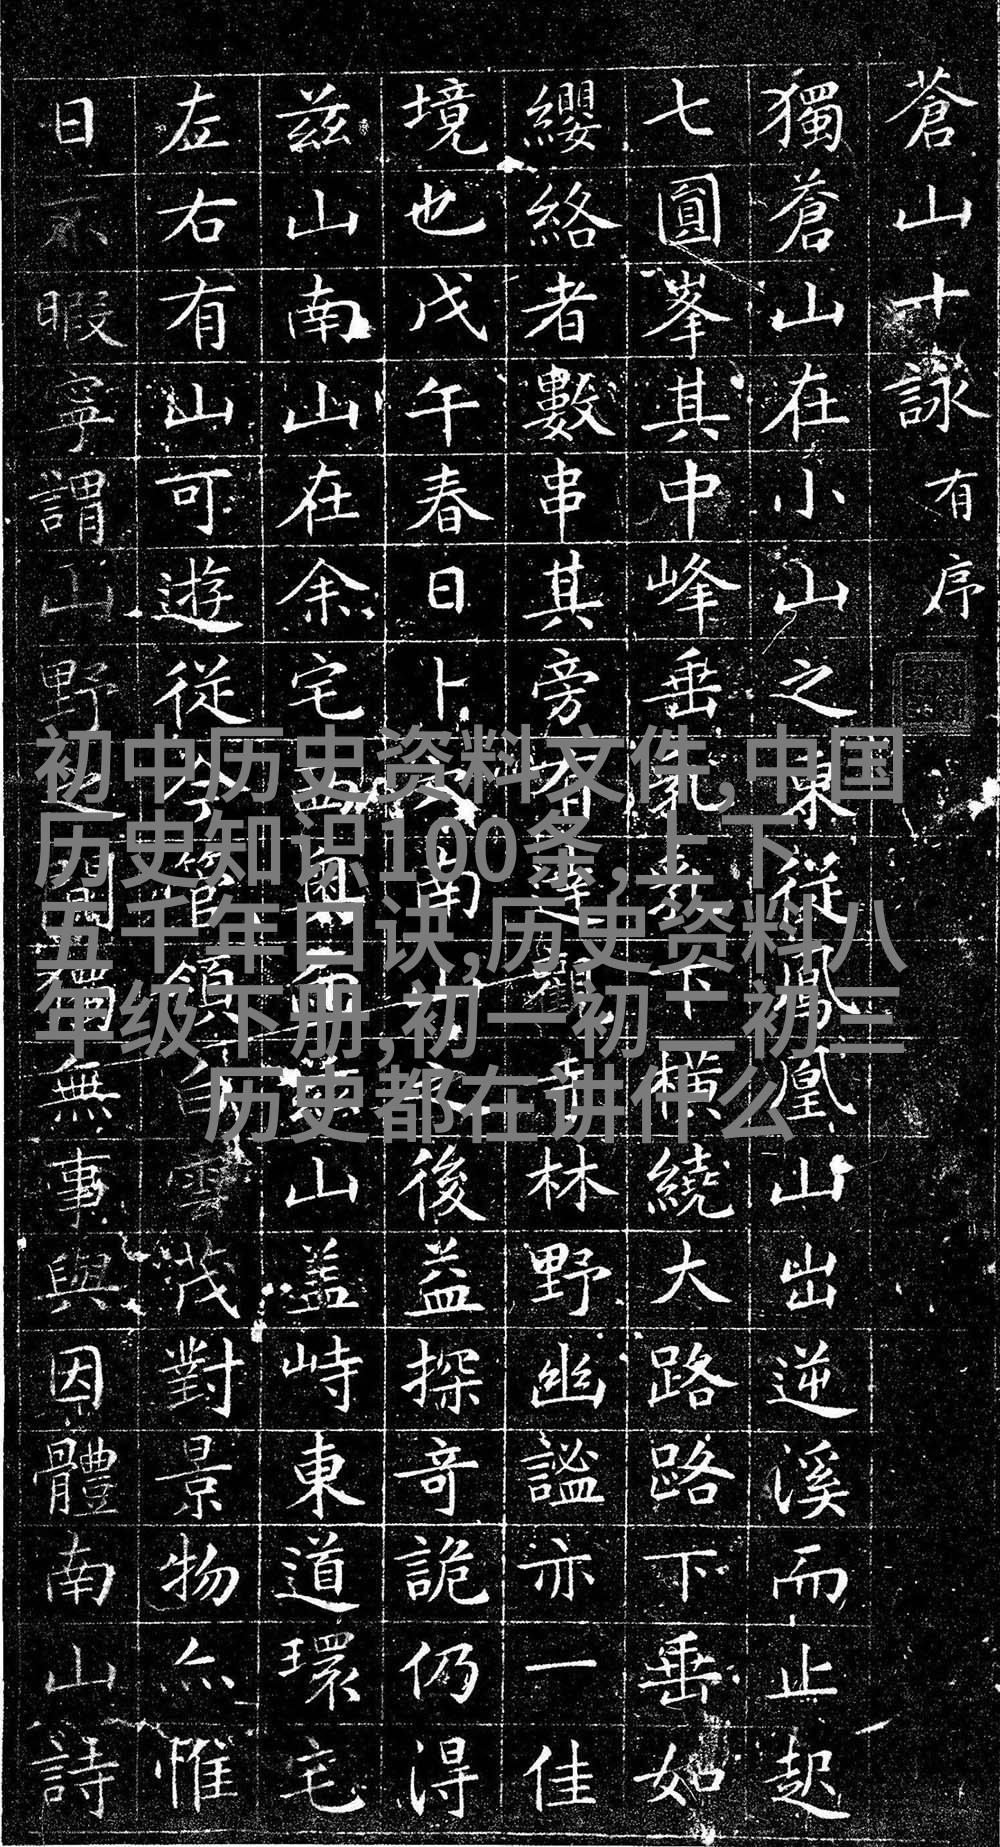 蒼山十詠 有序
獨蒼山在小山之東從鳳凰山出逆溪而止起
七圓峯其中峰垂乳下橫繞大路路下垂如
纓絡者數串其旁有林野幽謐亦一佳
境也戊午春日卜南後益探奇詭仍得
茲山南山在余宅山蓋峙東道環宅
左右有山可遊從今管領白雲茂對景物亦惟
日不暇寧謂山野之間獨無事與因體南山詩
初中历史资料文件,中国
历史知识100条,上下
五千年口诀,历史资料八
年级下册,初一初二初三
历史都在讲什么